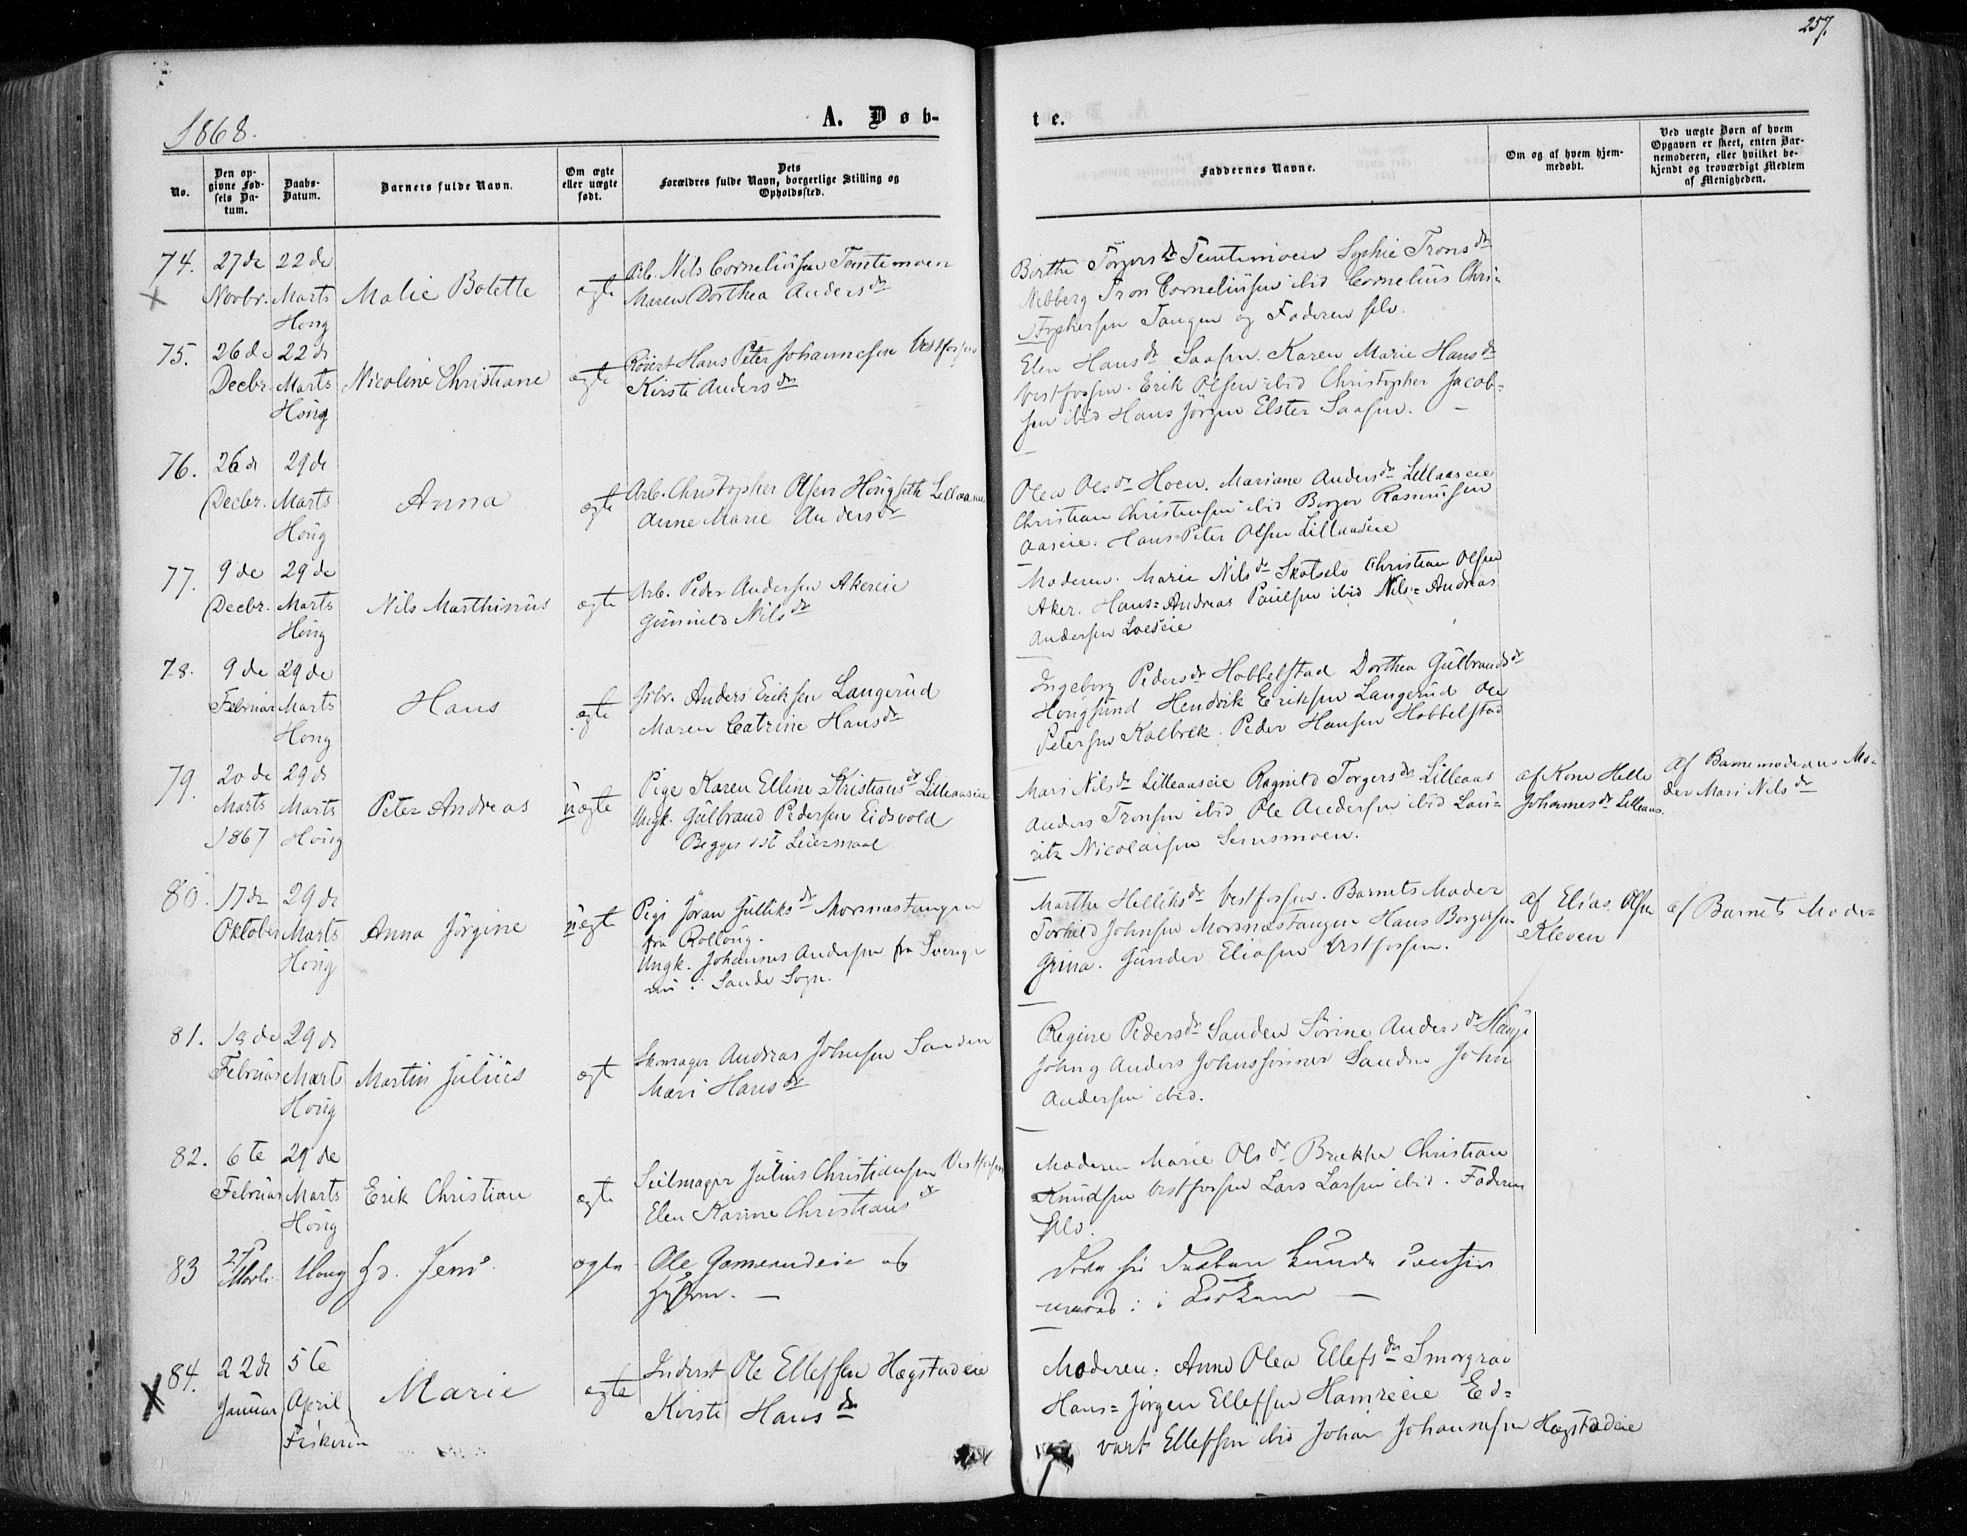 257.
1868.
A. Døb-
te.
No.
Den op-
givne Fød-
sels Da-
tum.
Daabs-
Datum.
Barnets fulde Navn.
Om ægte
eller uægte
født.
Dets
Forældres fulde Navn, borgerlige Stilling og
Opholdssted.
Faddernes Navne.
Om og af hvem hjem-
medøbt.
Ved uægte Børn af hvem
Opgaven er skeet, enten Bar-
nemoderen, eller hvilket be-
kjendt og troværdigt Medlem
af Menigheden.
74.
27de
Novbr.
22de
Marts
Houg
Malie Bolette
ægte
Arb. Nils Corneliusen Temtemoen
Maren Dorthea Andersdr
Berthe Torgersdr Temtemoen Sophie Tronsdr
Nebberg Tron Corneliusen ibid Cornelius Chri-
stophersen Tangen og Faderen selv.
75.
26de
Decbr.
22de
Marts
Houg
Nicoline Christiane
ægte
Hans Peter Johannesen Vestfossen
Kirsti Andersdr
Elen Hansdr Saasen. Karen Marie Hansdr
Vestfossen. Erik Olsen ibid Christopher Jacob-
sen ibid Hans Jörgen Elster Saasen.
76.
26de
Decbr.
29de
Marts
Houg
Anna
ægte
Arb. Christopher Olsen Hougseth Lilleaaseie
Anne Marie Andersdr
Olea Olsdr Hoen. Mariane Andersdr Lilleaaseie
Christian Christensen ibid Borger Rasmusen
aaseie. Hans Peter Olsen Lilleaaseie
77.
9de
Decbr.
29de
Marts
Houg
Nils Marthinius
ægte
Arb. Peder Andersen Akereie
Gunnild Nilsdr
Moderen. Marie Nilsdr Skotselv Christian Olsen
Aker. Hans=Andreas Paulsen ibid Nils=Andreas
Andersen Loeseie
78.
9de
Februar
29de
Marts
Houg
Hans
ægte
Grbr. Anders Eriksen Langerud
Maren Catrine Hansdr
Ingeborg Pedersdr Hobbelstad Dorthea Gulbrandsdr
Hougsund Hendrik Eriksen Langerud Ole
Petersen Kalbrek. Peder Hansen Hobbelstad
79.
20de
Marts
1867
29de
Marts
Houg
Peter Andreas
uægte
Pige Karen Elline Kristiansdr Lilleaaseie
Ungk. Gulbrand Pedersen Eidsvold
Begges 1ste Leiermaal
Mari Nilsdr Lilleaaseie Ragnild Torgersdr Lilleaas
Anders Tronsen ibid Ole Andersen ibid Lau-
ritz Nicolaisen Semsmoen.
af Kone Helle
Johannesdr Lilleaas.
Af Barnemoderens Mo-
der Mari Nilsdr
80.
17de
Oktober
29de
Marts
Houg
Anna Jörgine
uægte
Pige Jöran Gulliksdr Morsnæstangen
fra Rolloug.
Ungk. Johannes Andersen fra Sverige
nu i Sande Sogn.
Marthe Helliksdr Vestfossen. Barnets Moder
Torkild Johnsen Morsnæstangen Hans Borgersen
Grina. Gunder Eliasen Vestfossen.
af Elias Olsen
Kleven
af Barnets Moder
81.
18de
Februar
29de
Marts
Houg
Martin Julius
ægt
Skomager Andreas Johnsen Sanden
Mari Hansdr
Regine Pedersdr Sanden Sörine Andersdr
John og Anders Johnssönner Sanden John
Andersen ibid.
82.
6te
Februar
29de
Marts
Houg
Erik Christian
ægte
Seilmager Julius Christiansen Vestfossen
Elen Karine Christiansdr
Moderen Marie Olsdr Brække Christian
Knudsen Vestfossen Lars Larsen ibid. Faderen
selv.
83
27
Houg
Jens
ægte
Ole
84.
22de
Januar
5te
April
Fiskum
Marie
ægte
Inderst Ole Ellefsen Hægstadeie
Kirsti Hansdr
Moderen. Anne Olea Ellefsdr Smorgrav
Hans=Jörgen Ellefsen Hamreeie Ed=
vart Ellefsen ibid Johan Johannesen Hægstadeie